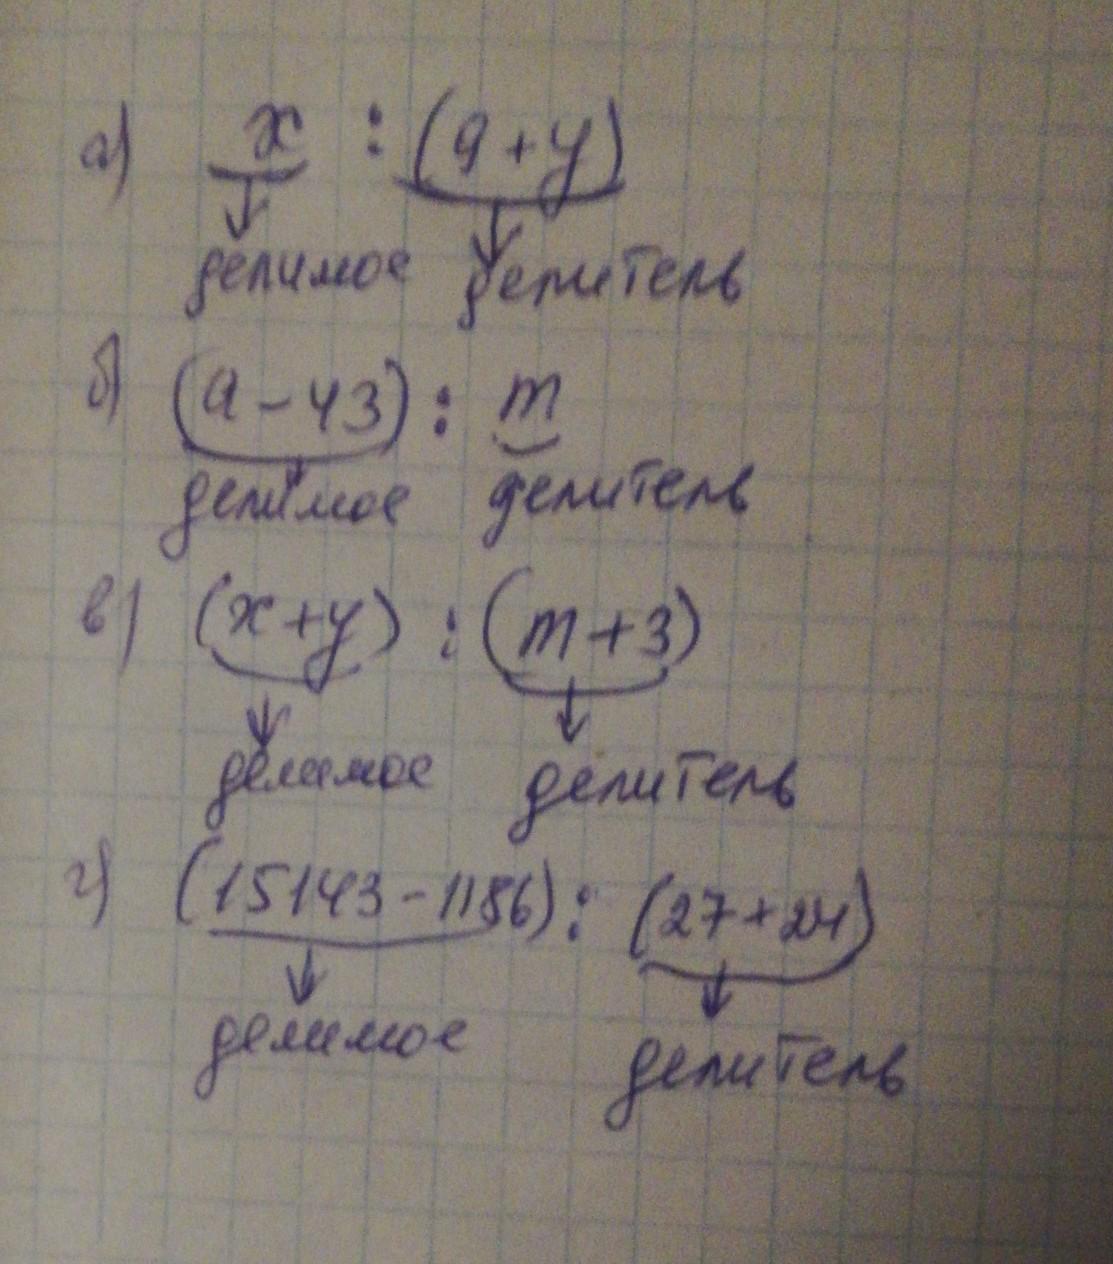 а) x : (9+y)
делимое делитель
б) (a-43) : m
делимое делитель
в) (x+y) : (m+3)
делимое делитель
г) (15143-1186) : (27+24)
делимое делитель